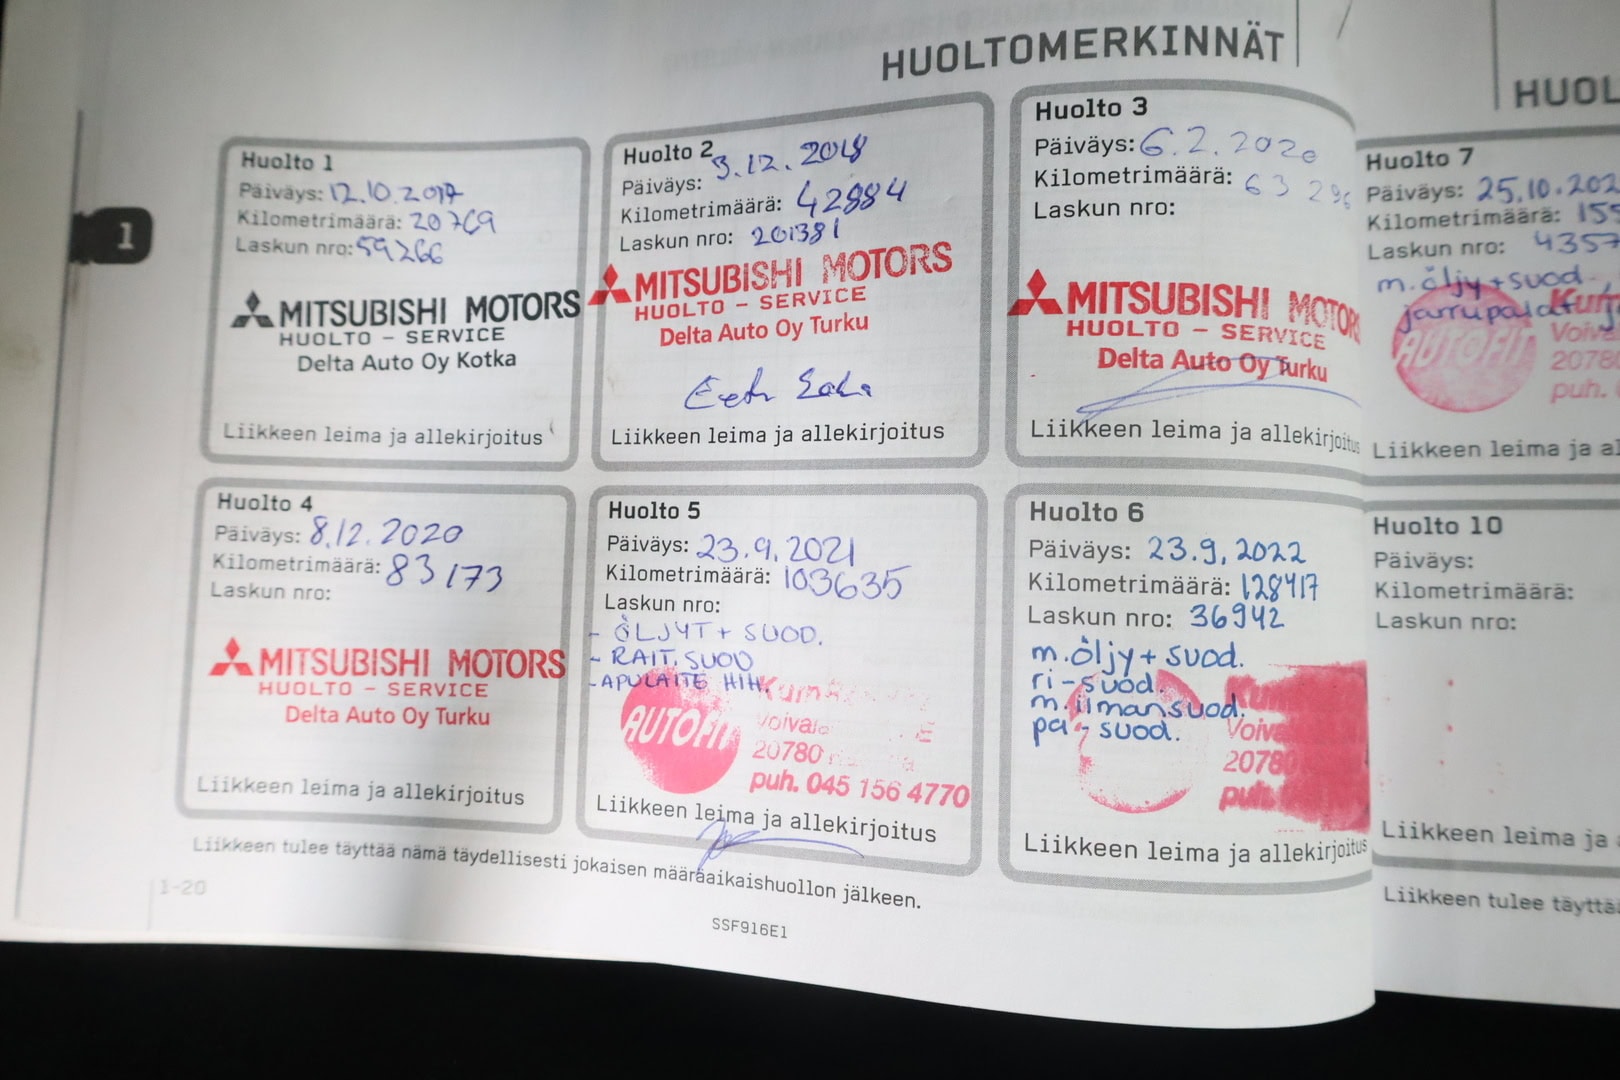 HUOLTOMERKINNÄT
Huolto 1
Päiväys: 12.10.2017
Kilometrimäärä: 20769
Laskun nro: 59266
MITSUBISHI MOTORS
HUOLTO - SERVICE
Delta Auto Oy Kotka
Liikkeen leima ja allekirjoitus
Huolto 2
Päiväys: 3.12.2018
Kilometrimäärä: 42884
Laskun nro: 201381
MITSUBISHI MOTORS
HUOLTO - SERVICE
Delta Auto Oy Turku
Liikkeen leima ja allekirjoitus
Huolto 3
Päiväys: 6.2.2020
Kilometrimäärä: 63 296
Laskun nro:
MITSUBISHI MOTORS
HUOLTO - SERVICE
Delta Auto Oy Turku
Liikkeen leima ja allekirjoitus
Huolto 4
Päiväys: 8.12.2020
Kilometrimäärä: 83173
Laskun nro:
MITSUBISHI MOTORS
HUOLTO - SERVICE
Delta Auto Oy Turku
Liikkeen leima ja allekirjoitus
Huolto 5
Päiväys: 23.9.2021
Kilometrimäärä: 103635
Laskun nro:
- ÖLJYT + SUOD.
- RAIT.SUOD
- APULAITE HIH.
AUTOFIT
20780
puh. 045 156 4770
Liikkeen leima ja allekirjoitus
Huolto 6
Päiväys: 23.9.2022
Kilometrimäärä: 128417
Laskun nro: 36942
m.öljy + suod.
ri-suod.
m.ilmansuod.
pa-suod.
20780
puh.
Liikkeen leima ja allekirjoitus
Liikkeen tulee täyttää nämä täydellisesti jokaisen määräaikaishuollon jälkeen.
1-20
SSF916E1
1
HUOL
Huolto 7
Päiväys: 25.10.202
Kilometrimäärä: 155
Laskun nro: 4357
m.öljy + suod.
jarrupalat
AUTOFIT
2078
puh.
Liikkeen leima ja al
Huolto 10
Päiväys:
Kilometrimäärä:
Laskun nro:
Liikkeen leima ja
Liikkeen tulee täyttä